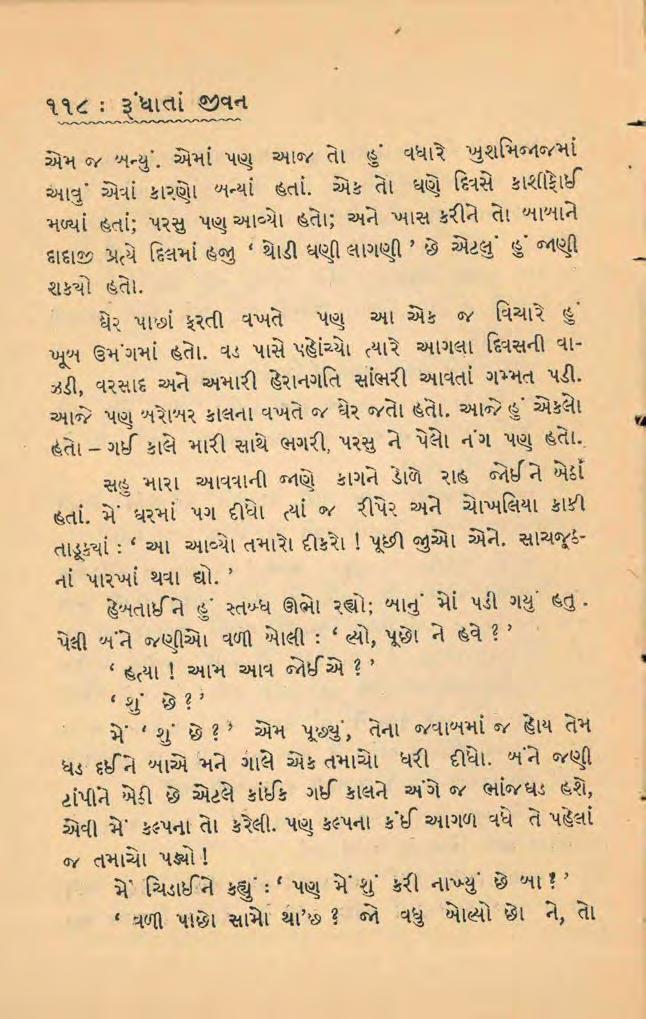 ૧૧૮ : રૂંધાતાં જીવન
એમ જ બન્યું. એમાં પણ આજ તો હું વધારે ખુશમિજાજમાં
આવું એવાં કારણો બન્યાં હતાં. એક તો ઘણે દિવસે કાશીફોઈ
મળ્યાં હતાં; પરસુ પણ આવ્યો હતો; અને ખાસ કરીને તો બાબાને
દાદાજી પ્રત્યે દિલમાં હજુ ‘ થોડી ઘણી લાગણી ’ છે એટલું હું જાણી
શકયો હતો.
ઘેર પાછાં ફરતી વખતે પણ આ એક જ વિચારે હું
ખૂબ ઉમંગમાં હતો. વડ પાસે પહોંચ્યો ત્યારે આગલા દિવસની વા-
ઝડી, વરસાદ અને અમારી હેરાનગતિ સાંભરી આવતાં ગમ્મત પડી.
આજે પણ બરોબર કાલના વખતે જ ઘેર જતો હતો. આજે હું એકલો
હતો – ગઈ કાલે મારી સાથે ભગરી, પરસુ ને પેલો નંગ પણ હતો.
સહુ મારા આવવાની જાણે કાગને ડોળે રાહ જોઈને બેઠાં
હતાં. મેં ઘરમાં પગ દીધો ત્યાં જ રીપેર અને ચોખલિયા કાકી
તાડૂકયાં : ‘ આ આવ્યો તમારો દીકરો ! પૂછી જુઓ એને. સાચજૂઠ-
નાં પારખાં થવા દ્યો. ’
હેબતાઈને હું સ્તબ્ધ ઊભો રહ્યો; બાનું મોં પડી ગયું હતુ.
પેલી બંને જણીઓ વળી બોલી : ‘ લ્યો, પૂછો ને હવે ? ’
‘ હત્યા ! આમ આવ જોઈએ ? ’
‘ શું છે ? ’
મેં ‘ શું છે ? ’ એમ પૂછ્યું, તેના જવાબમાં જ હોય તેમ
ધડ દઈને બાએ મને ગાલે એક તમાચો ધરી દીધો. બંને જણી
ટાંપીને બેઠી છે એટલે કાંઈક ગઈ કાલને અંગે જ ભાંજઘડ હશે,
એવી મેં કલ્પના તો કરેલી. પણ કલ્પના કંઈ આગળ વધે તે પહેલાં
જ તમાચો પડ્યો !
મેં ચિડાઈને કહ્યું : ‘ પણ મેં શું કરી નાખ્યું છે બા ? ’
‘ વળી પાછો સામો થા’છ ? જો વધુ બોલ્યો છો ને, તો